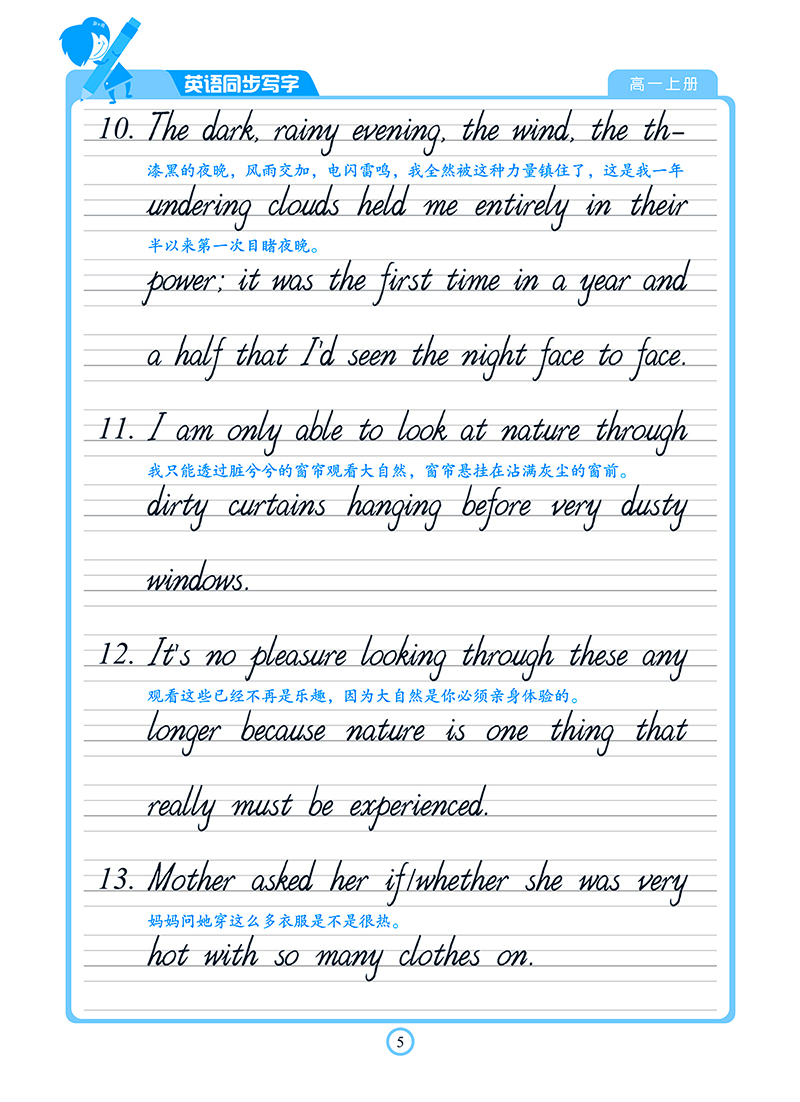 英语同步写字
高一上册
10. The dark, rainy evening, the wind, the th-
漆黑的夜晚，风雨交加，电闪雷鸣，我全然被这种力量镇住了，这是我一年
undering clouds held me entirely in their
半以来第一次目睹夜晚。
power; it was the first time in a year and
a half that I'd seen the night face to face.
11. I am only able to look at nature through
我只能透过脏兮兮的窗帘观看大自然，窗帘悬挂在沾满灰尘的窗前。
dirty curtains hanging before very dusty
windows.
12. It's no pleasure looking through these any
观看这些已经不再是乐趣，因为大自然是你必须亲身体验的。
longer because nature is one thing that
really must be experienced.
13. Mother asked her if/whether she was very
妈妈问她穿这么多衣服是不是很热。
hot with so many clothes on.
5